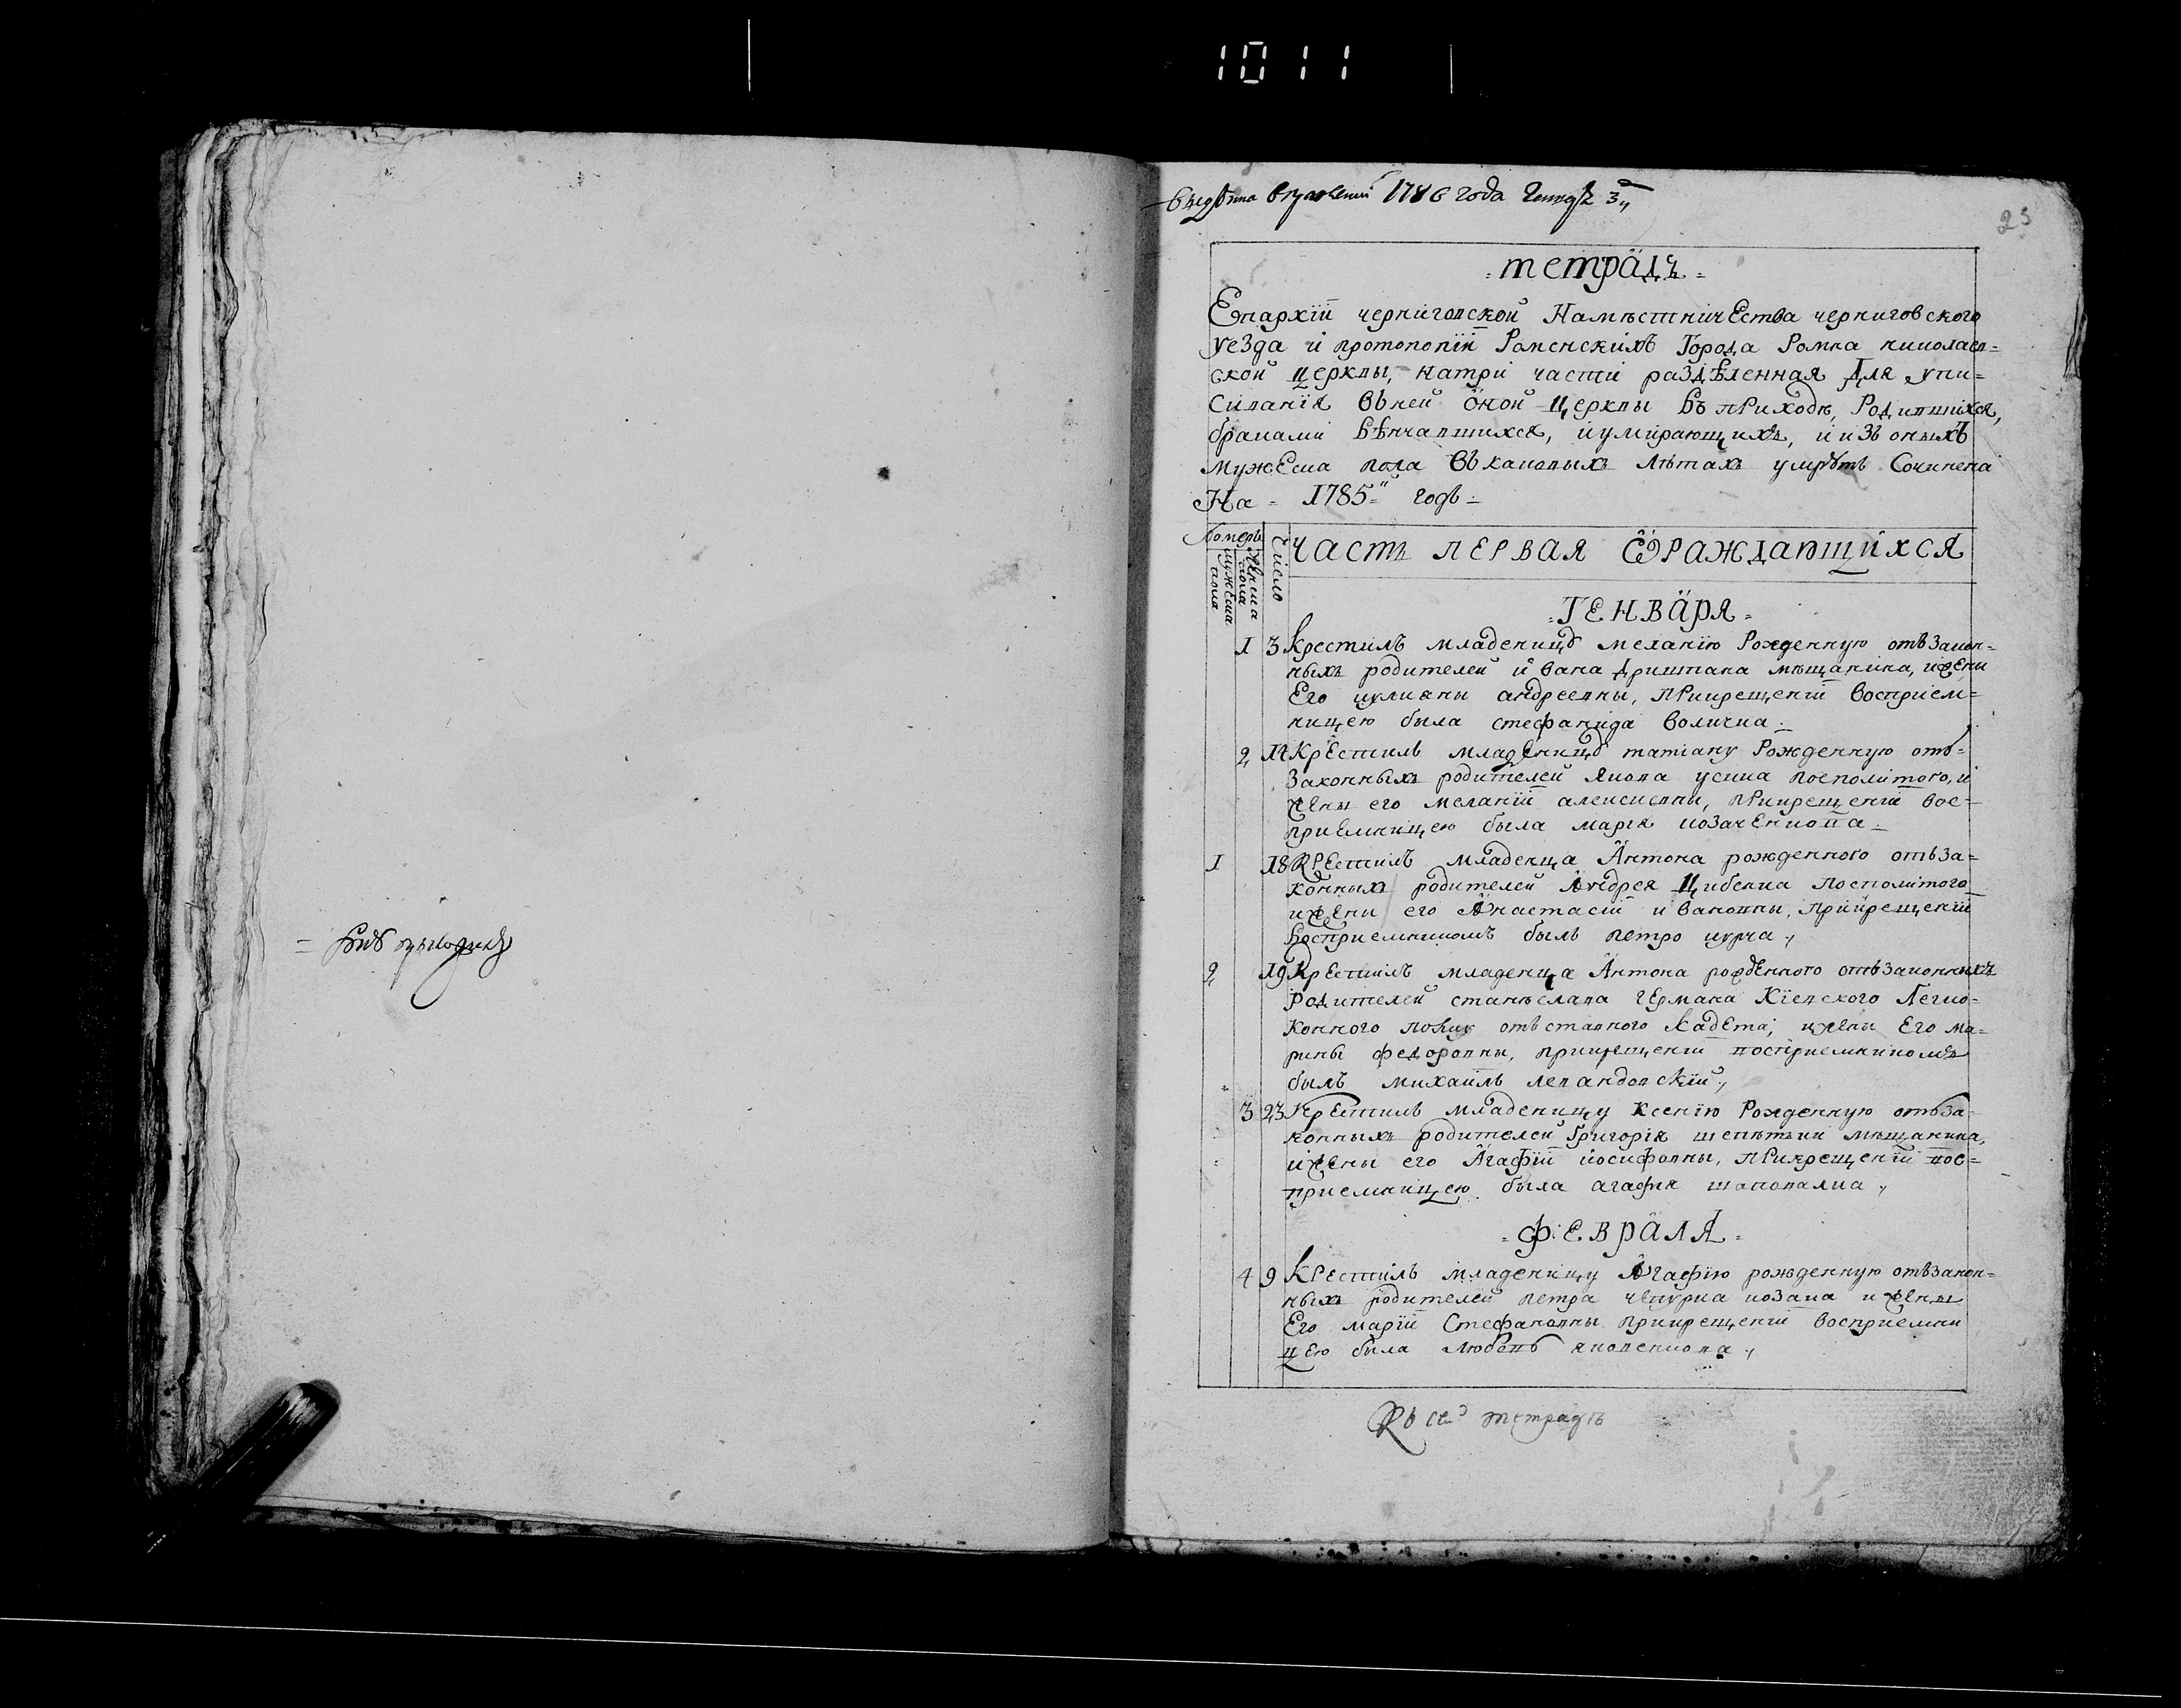 1011
1786 года
23
тетрадъ
Епархіи черниговской Намѣстничества черниговского
уезда и протопопіи Роменскихъ Города Ромна николаев=
ской церквы, натри части раздѣленная Для упи=
сиванія вѣней оной церквы въ приходѣ, Родившихся,
браками вѣнчавшихся, иумирающихъ, иизъ оныхъ
мужеска пола въ каковыхъ лѣтахъ умрѣтъ Сочинена
На = 1785" годъ =
номеръ
мужеска пола
женска пола
Число
часть первая ѡраждающихся
Генваря
1 3 Крестилъ младеницу меланію Рожденную отъ Закон=
ныхъ родителей ивана дриштана мѣщанина, ижены
Его иулияны андреевны, прикрещеніи восприем=
ницею была стефанида величка
2 14 Крестилъ младеницу татіану Рожденную отъ=
Законныхъ родителей якова усика посполитого, и
жены его меланіи алексиевны, прикрещеніи вос=
приемницею была марія козаченкова
1 18 Крестилъ младенца Антона рожденного отъ за=
конныхъ родителей Андрея Цибенка посполитого
ижены его Анастасіи ивановны, прикрещеніи
Восприемникомъ былъ петро курча
2 19 Крестилъ младенца Антона рожденного отъ законныхъ
родителей станѣслава германа Кіевского Легио=
конного полку отъставного кадета, ижены Его ма=
рины федоровны, прикрещеніи восприемникомъ
былъ михаилъ левандовскій
3 23 Крестилъ младеницу ксенію Рожденную отъ за=
конныхъ родителей Григорія шепѣтки мѣщанина,
ижены его Агафіи иосифовны, прикрещеніи вос=
приемницею была агафия шаповалка
февраля
4 9 Крестилъ младеницу Агафію рожденную отъ закон=
ныхъ родителей петра чепурка козака и жены
Его маріи Стефановны прикрещеніи восприемни
цею была любовь яковенкова
Къ сей тетрадѣ